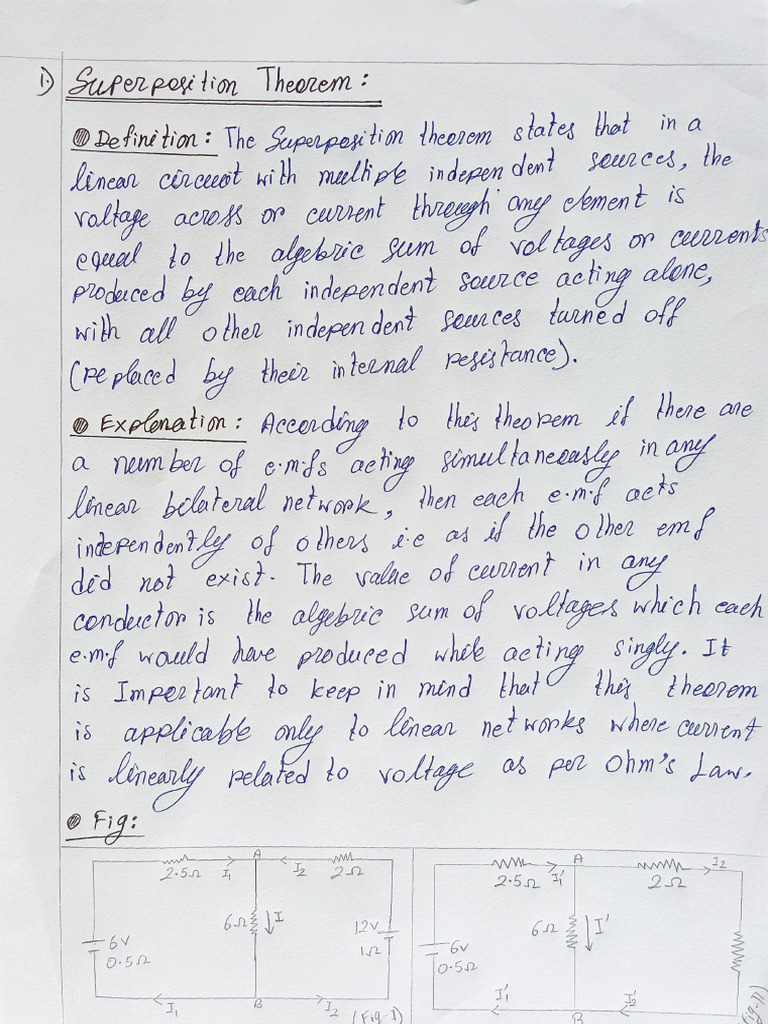 1.) Superposition Theorem:
Definition: The Superposition theorem states that in a
linear circuit with multiple independent sources, the
voltage across or current through any element is
equal to the algebric sum of voltages or currents
produced by each independent source acting alone,
with all other independent sources turned off
(replaced by their internal resistance).
Explenation: According to this theorem if there are
a number of e.m.fs acting simultaneously in any
linear bilateral network, then each e.m.f acts
independently of others i.e as if the other emf
did not exist. The value of current in any
conductor is the algebric sum of voltages which each
e.m.f would have produced while acting singly. It
is Important to keep in mind that this theorem
is applicable only to linear networks where current
is linearly related to voltage as per Ohm's Law.
Fig:
A
2.5Ω I1 I2 2Ω
6Ω I
6V
0.5Ω
12V
1Ω
I1 B I2
(Fig-I)
A
2.5Ω I1' 2Ω I2
6Ω I'
6V
0.5Ω
I1' B I2'
(Fig-II)